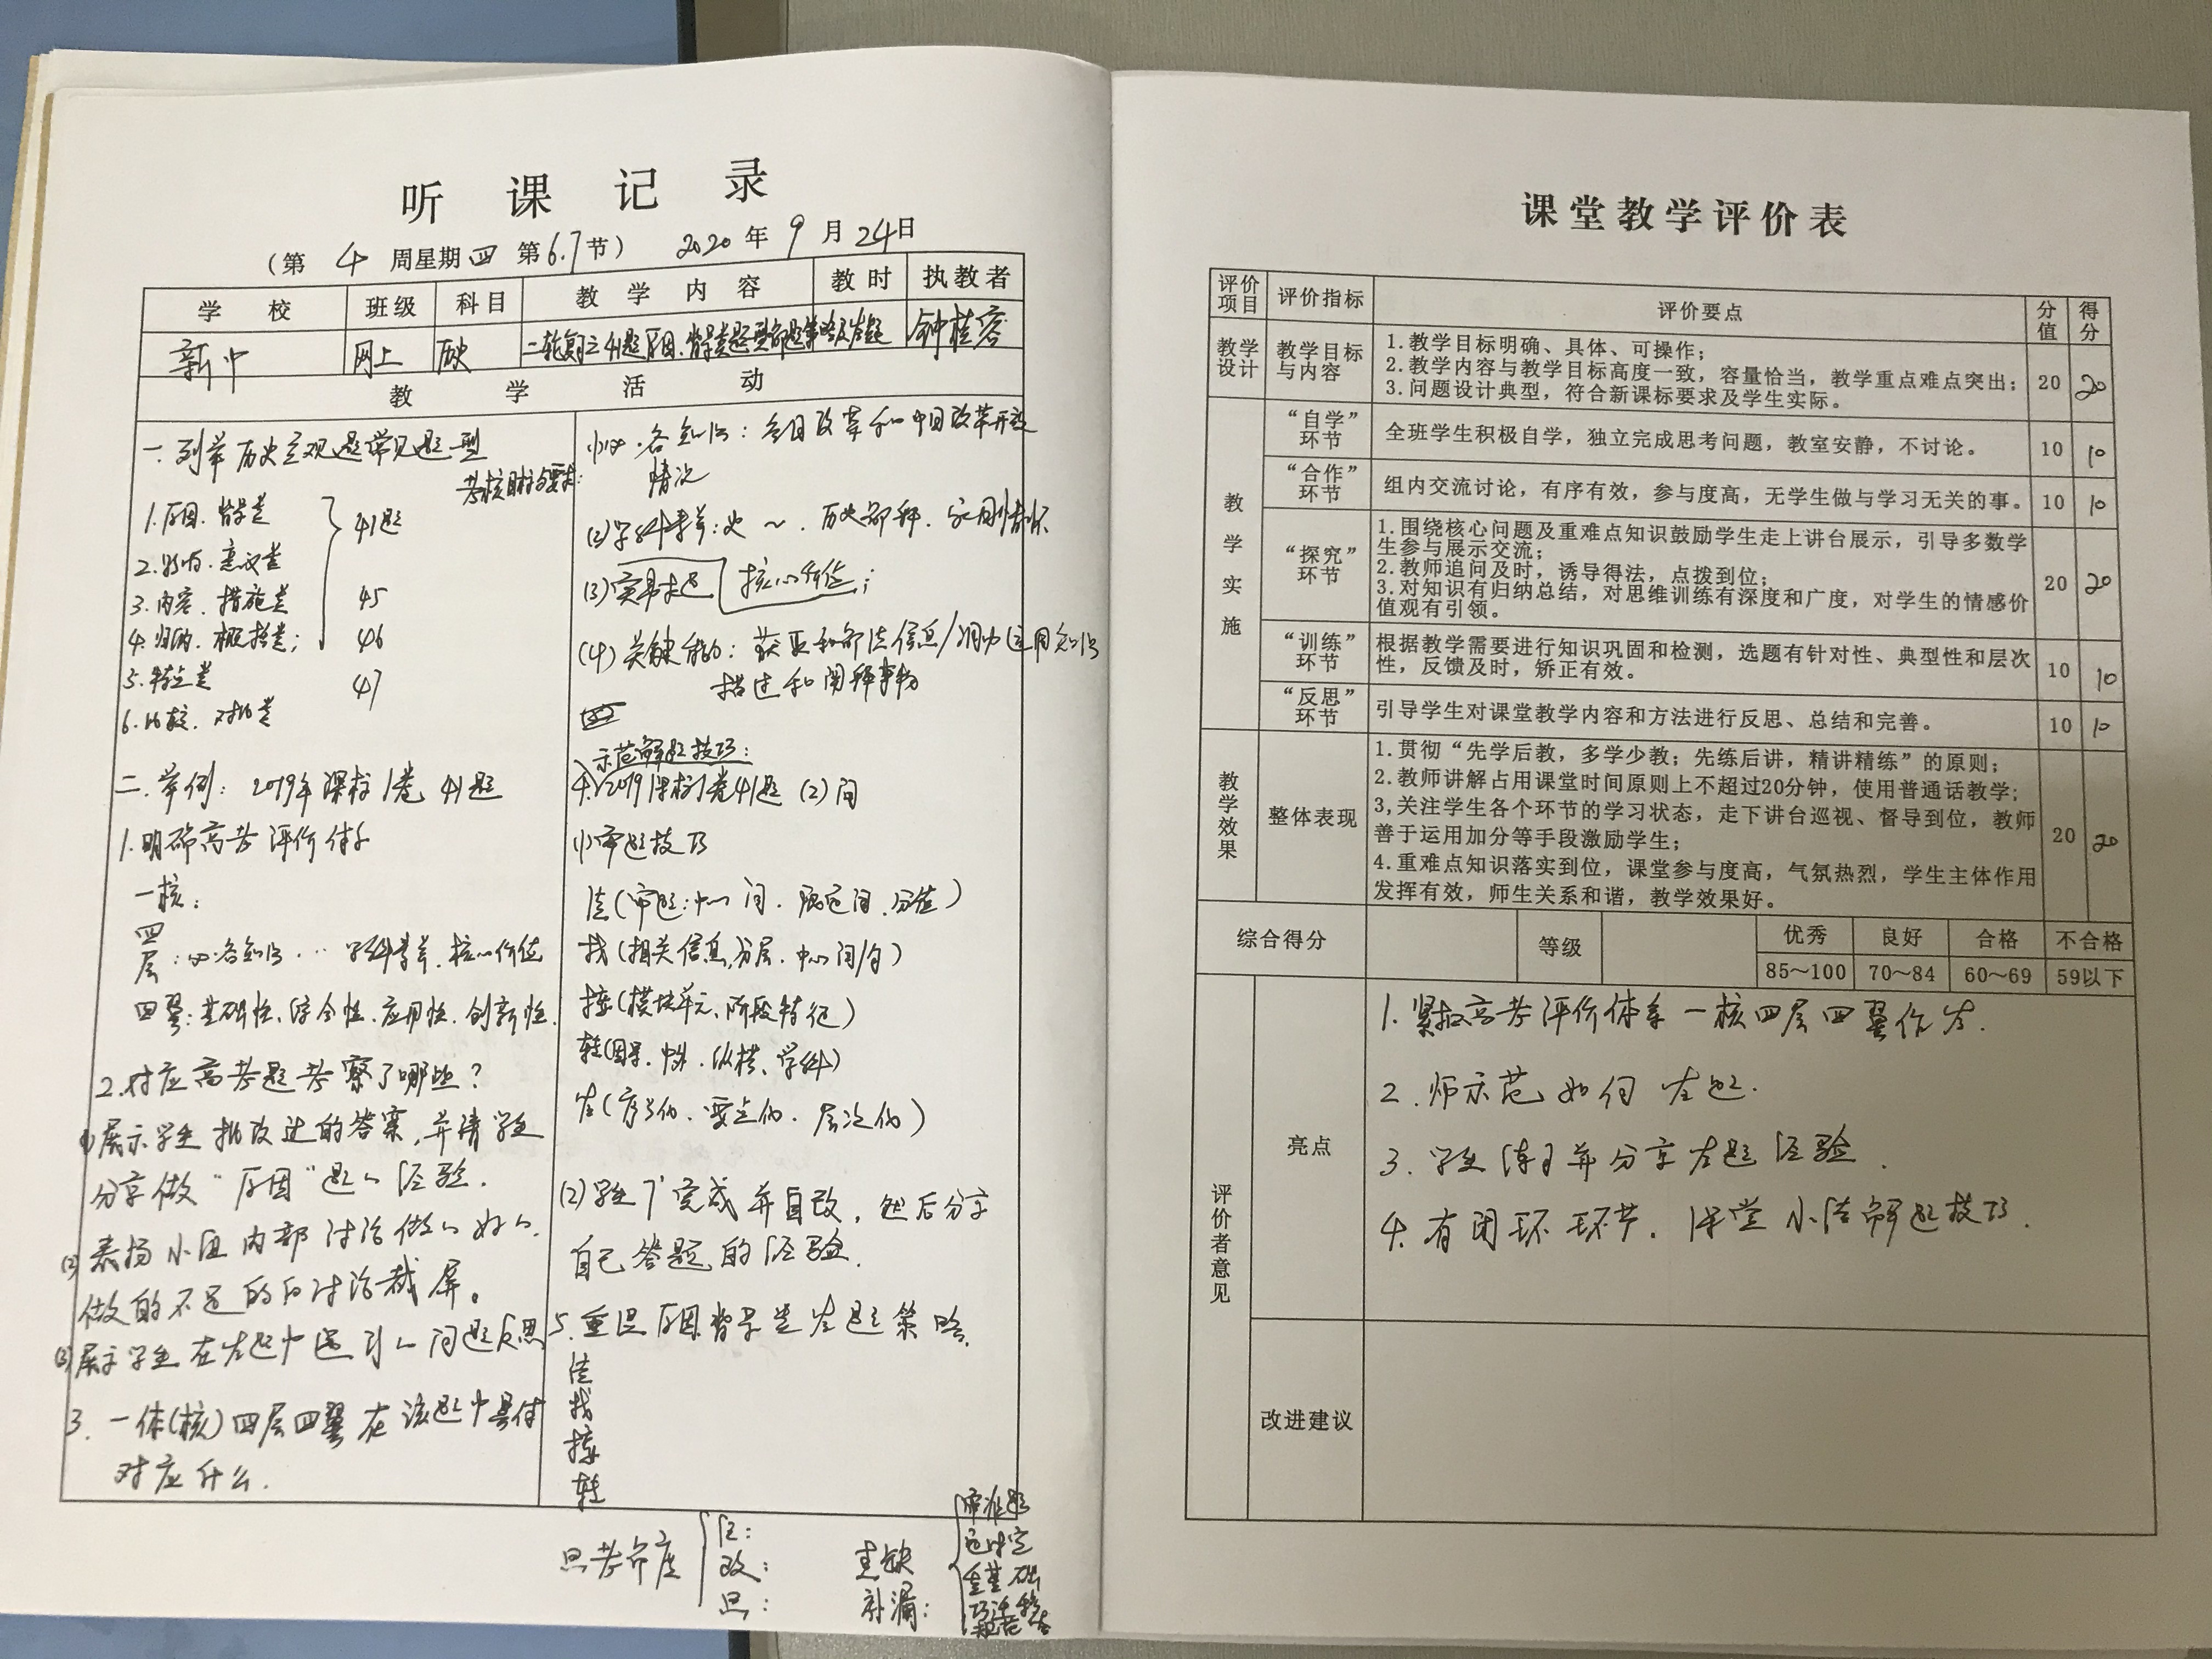 听课记录
（第 4 周星期四 第6.7节） 2020年9月24日
学校 班级 科目 教学内容 教时 执教者
新中 网上 历史 二轮复习之41题原因、背景类题型命题策略及答题 钟桂容
教学活动
一.列举历史主观题常见题型
1.原因.背景类
41题
2.影响.意义类
3.内容.措施类 45
4.归纳.概括类; 46
5.特点类 47
6.比较.对比类
二.举例：2019年课标1卷41题
1.明确高考评价体系
一核：
四层：必备知识…学科素养.核心价值
四翼：基础性、综合性、应用性、创新性.
2.对应高考题考察了哪些？
(1)展示学生批改过的答案,并请学生
分享做“原因”题的经验.
(2)表扬小组内部讨论做的好的.
做的不足的的讨论截屏。
(3)展示学生在答题中遇到的问题反思
3.一体(核)四层四翼在该题中具体
对应什么.
考核目标与要求:
(1)必备知识：各国改革和中国改革开放
情况
(2)学科素养：史～.历史解释.家国情怀
(3)核心价值;
(4)关键能力：获取和解读信息/调动运用知识
描述和阐释事物
示范解题技巧：
4.2019课标1卷41题(2)问
(1)审题技巧
读(审题：中心词.限定词.分值)
找(相关信息,分层.中心词/句)
接(模块单元、阶段特征)
转(因果.中外.纵横、学科)
答(序号化.要点化.层次化)
(2)学生下完成并自改，然后分享
自己答题的经验.
5.重温原因背景类答题策略.
读
找
接
转
改：
思：
查缺
补漏：
审准题
重基础
课堂教学评价表
评价项目 评价指标 评价要点 分值 得分
教学设计 教学目标与内容
1.教学目标明确、具体、可操作；
2.教学内容与教学目标高度一致，容量恰当，教学重点难点突出；
3.问题设计典型，符合新课标要求及学生实际。
20 20
教学实施
“自学”环节 全班学生积极自学，独立完成思考问题，教室安静，不讨论。 10 10
“合作”环节 组内交流讨论，有序有效，参与度高，无学生做与学习无关的事。 10 10
“探究”环节
1.围绕核心问题及重难点知识鼓励学生走上讲台展示，引导多数学
生参与展示交流；
2.教师追问及时，诱导得法，点拨到位；
3.对知识有归纳总结，对思维训练有深度和广度，对学生的情感价
值观有引领。
20 20
“训练”环节
根据教学需要进行知识巩固和检测，选题有针对性、典型性和层次
性，反馈及时，矫正有效。
10 10
“反思”环节 引导学生对课堂教学内容和方法进行反思、总结和完善。 10 10
教学效果 整体表现
1.贯彻“先学后教，多学少教；先练后讲，精讲精练”的原则；
2.教师讲解占用课堂时间原则上不超过20分钟，使用普通话教学；
3,关注学生各个环节的学习状态，走下讲台巡视、督导到位，教师
善于运用加分等手段激励学生；
4.重难点知识落实到位，课堂参与度高，气氛热烈，学生主体作用
发挥有效，师生关系和谐，教学效果好。
20 20
综合得分 等级 优秀 良好 合格 不合格
85～100 70～84 60～69 59以下
评价者意见
亮点
1.紧扣高考评价体系一核四层四翼作答.
2.师示范如何答题.
3.学生练习并分享答题经验.
4.有闭环环节.课堂小结解题技巧.
改进建议